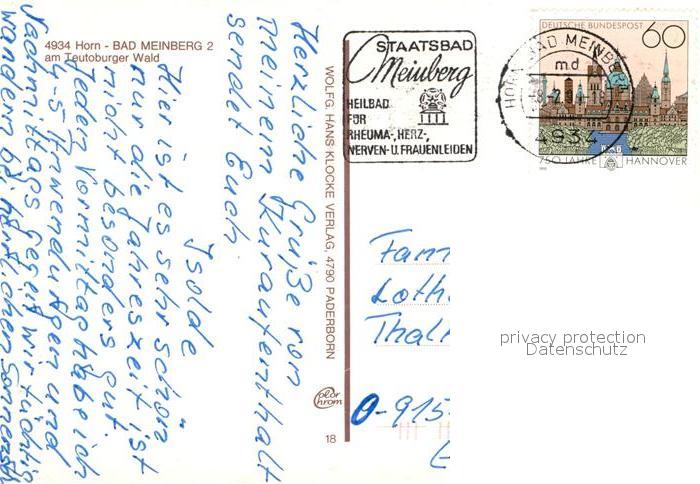 4934 Horn - BAD MEINBERG 2
am Teutoburger Wald
Herzliche Grüße von
meinem Kuraufenthalt
sendet Euch
Isolde
Hier ist es sehr schön
nur die Jahreszeit ist
nicht besonders gut.
Jeden Vormittag habe ich
4-5 Anwendungen und
Nachmittags gehen wir tüchtig
wandern bei herrlichem
WOLFG. HANS KLOCKE VERLAG, 4790 PADERBORN
color
chrom
18
STAATSBAD
Meinberg
HEILBAD
FÜR
RHEUMA-, HERZ-,
NERVEN- U. FRAUENLEIDEN
HORN-BAD MEINB
md
4934
DEUTSCHE BUNDESPOST
60
750 JAHRE HANNOVER
Fam
Loth
Thal
O-915
privacy protection
Datenschutz